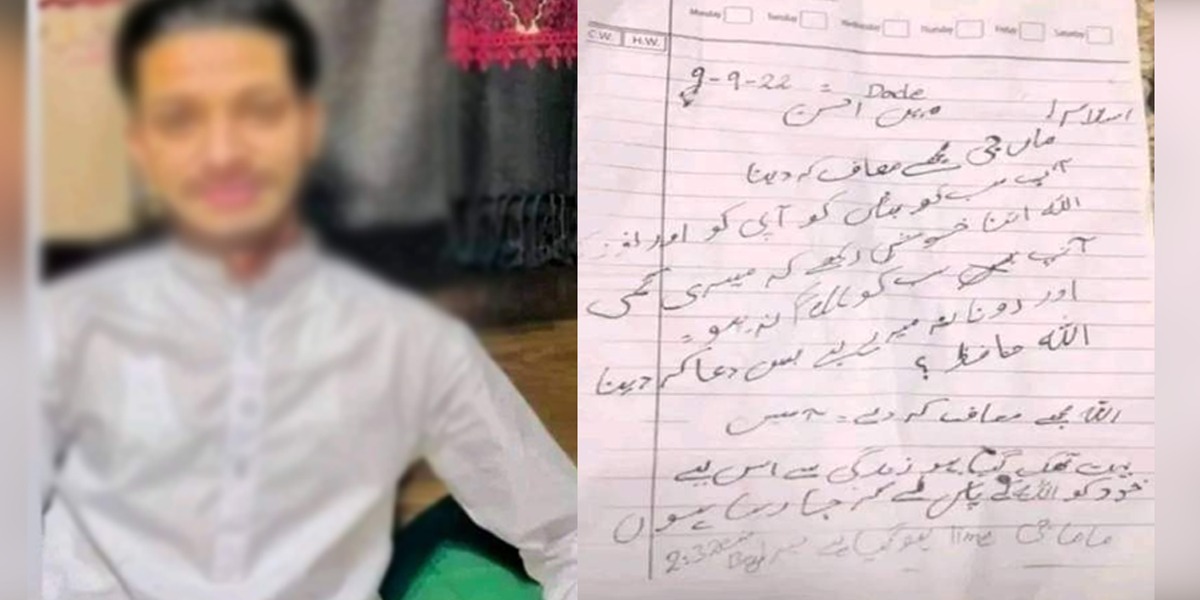 Monday Tuesday Wednesday Thursday Friday Saturday
C.W. H.W.
9-9-22 = Dade
اسلام! میں احسن
ماں جی مجھے معاف کر دینا
آپ سب کو آپی کو اور
اللہ اتنا خوشی دکھے کہ میری کمی
آپ سب کو نہ ہو۔
اور دونا نہ میرے لیے بس دعا کر دینا
اللہ حافظ؟
اللہ مجھے معاف کر دے۔ آمین
بہت تھک گیا ہو زندگی سے اس لیے
خود کو اللہ کے پاس لے کر جا رہا ہوں
ماما جی Time ہو گیا ہے